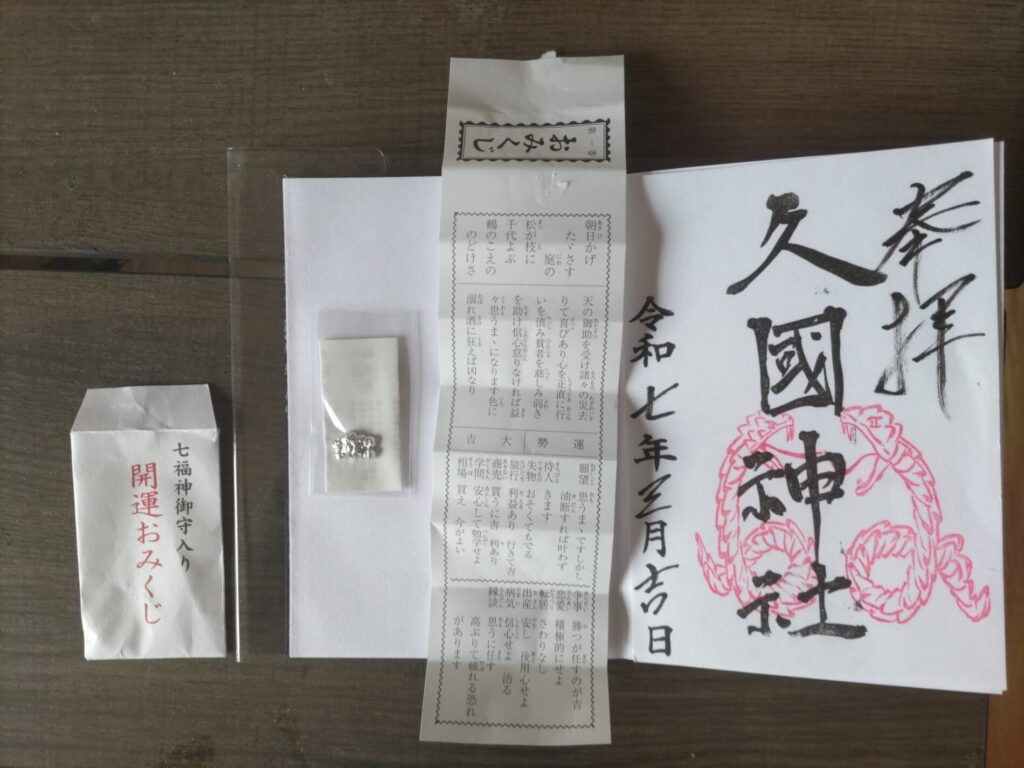 奉拝
久國神社
令和七年三月吉日
第一番
おみくじ
朝日かげ
たゞさす
庭の
松が枝に
千代よぶ
鶴のこえの
のどけさ
天の御助を受け諸々の災去
りて喜びあり心を正直に行
いを慎み貧者を慈しみ弱き
を助け信心怠りなければ益
々思うまゝになります色に
溺れ酒に狂えば凶なり
運勢 大吉
願望 思うまゝですしかし
油断すれば叶わず
待人 きます
失物 おそくてもでる
旅行 利益あり 行きて吉
商売 買うに吉 利あり
学問 安心して勉学せよ
相場 買え 今がよい
争事 勝つが任すのが吉
恋愛 積極的にせよ
転居 さわりなし
出産 安し 後用心せよ
病気 信心せよ 治る
縁談 思うに任す
高ぶりて破れる恐れ
があります
七福神御守入り
開運おみくじ